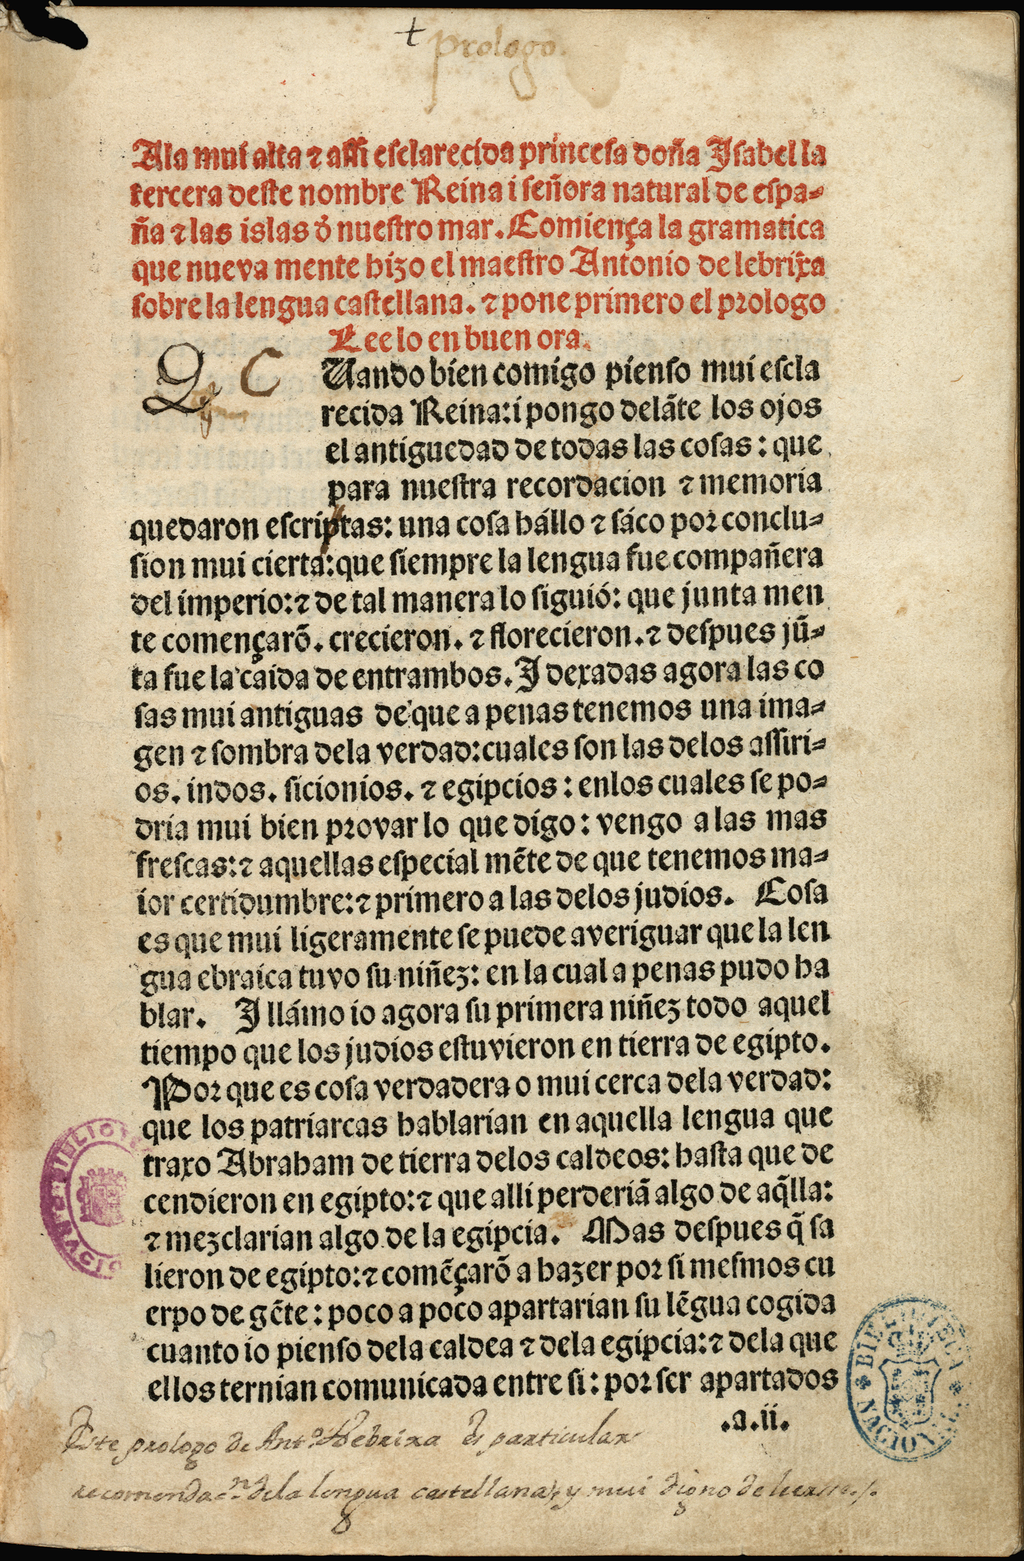 prologo
A la mui alta ⁊ assi esclarecida princesa doña Isabel la
tercera deste nombre Reina i señora natural de espa-
ña ⁊ las islas d̄ nuestro mar. Comiença la gramatica
que nueva mente hizo el maestro Antonio de lebrixa
sobre la lengua castellana. ⁊ pone primero el prologo
Lee lo en buen ora.
Q C
Uando bien comigo pienso mui escla
recida Reina: i pongo delāte los ojos
el antiguedad de todas las cosas: que
para nuestra recordacion ⁊ memoria
quedaron escriptas: una cosa hállo ⁊ sáco por conclu-
sion mui cierta: que siempre la lengua fue compañera
del imperio: ⁊ de tal manera lo siguió: que junta men
te començarō. crecieron. ⁊ florecieron. ⁊ despues jū-
ta fue la caida de entrambos. I dexadas agora las co
sas mui antiguas de que a penas tenemos una ima-
gen ⁊ sombra dela verdad: cuales son las delos assiri-
os. indos. sicionios. ⁊ egipcios: enlos cuales se po-
dria mui bien provar lo que digo: vengo a las mas
frescas: ⁊ aquellas especial mēte de que tenemos ma-
ior certidumbre: ⁊ primero a las delos judios. Cosa
es que mui ligeramente se puede averiguar que la len
gua ebraica tuvo su niñez: en la cual a penas pudo ha
blar. I llámo io agora su primera niñez todo aquel
tiempo que los judios estuvieron en tierra de egipto.
Por que es cosa verdadera o mui cerca dela verdad:
que los patriarcas hablarian en aquella lengua que
traxo Abraham de tierra delos caldeos: hasta que de
cendieron en egipto: ⁊ que alli perderiā algo de aq̄lla:
⁊ mezclarian algo de la egipcia. Mas despues q̄ sa
lieron de egipto: ⁊ comēçarō a hazer por si mesmos cu
erpo de gēte: poco a poco apartarian su lēgua cogida
cuanto io pienso dela caldea ⁊ dela egipcia: ⁊ dela que
ellos ternian comunicada entre si: por ser apartados
.a.ii.
Este prologo de Antº. Nebrixa Es particular
recomendaⁿ. dela lengua castellana, y mui digno de leerse